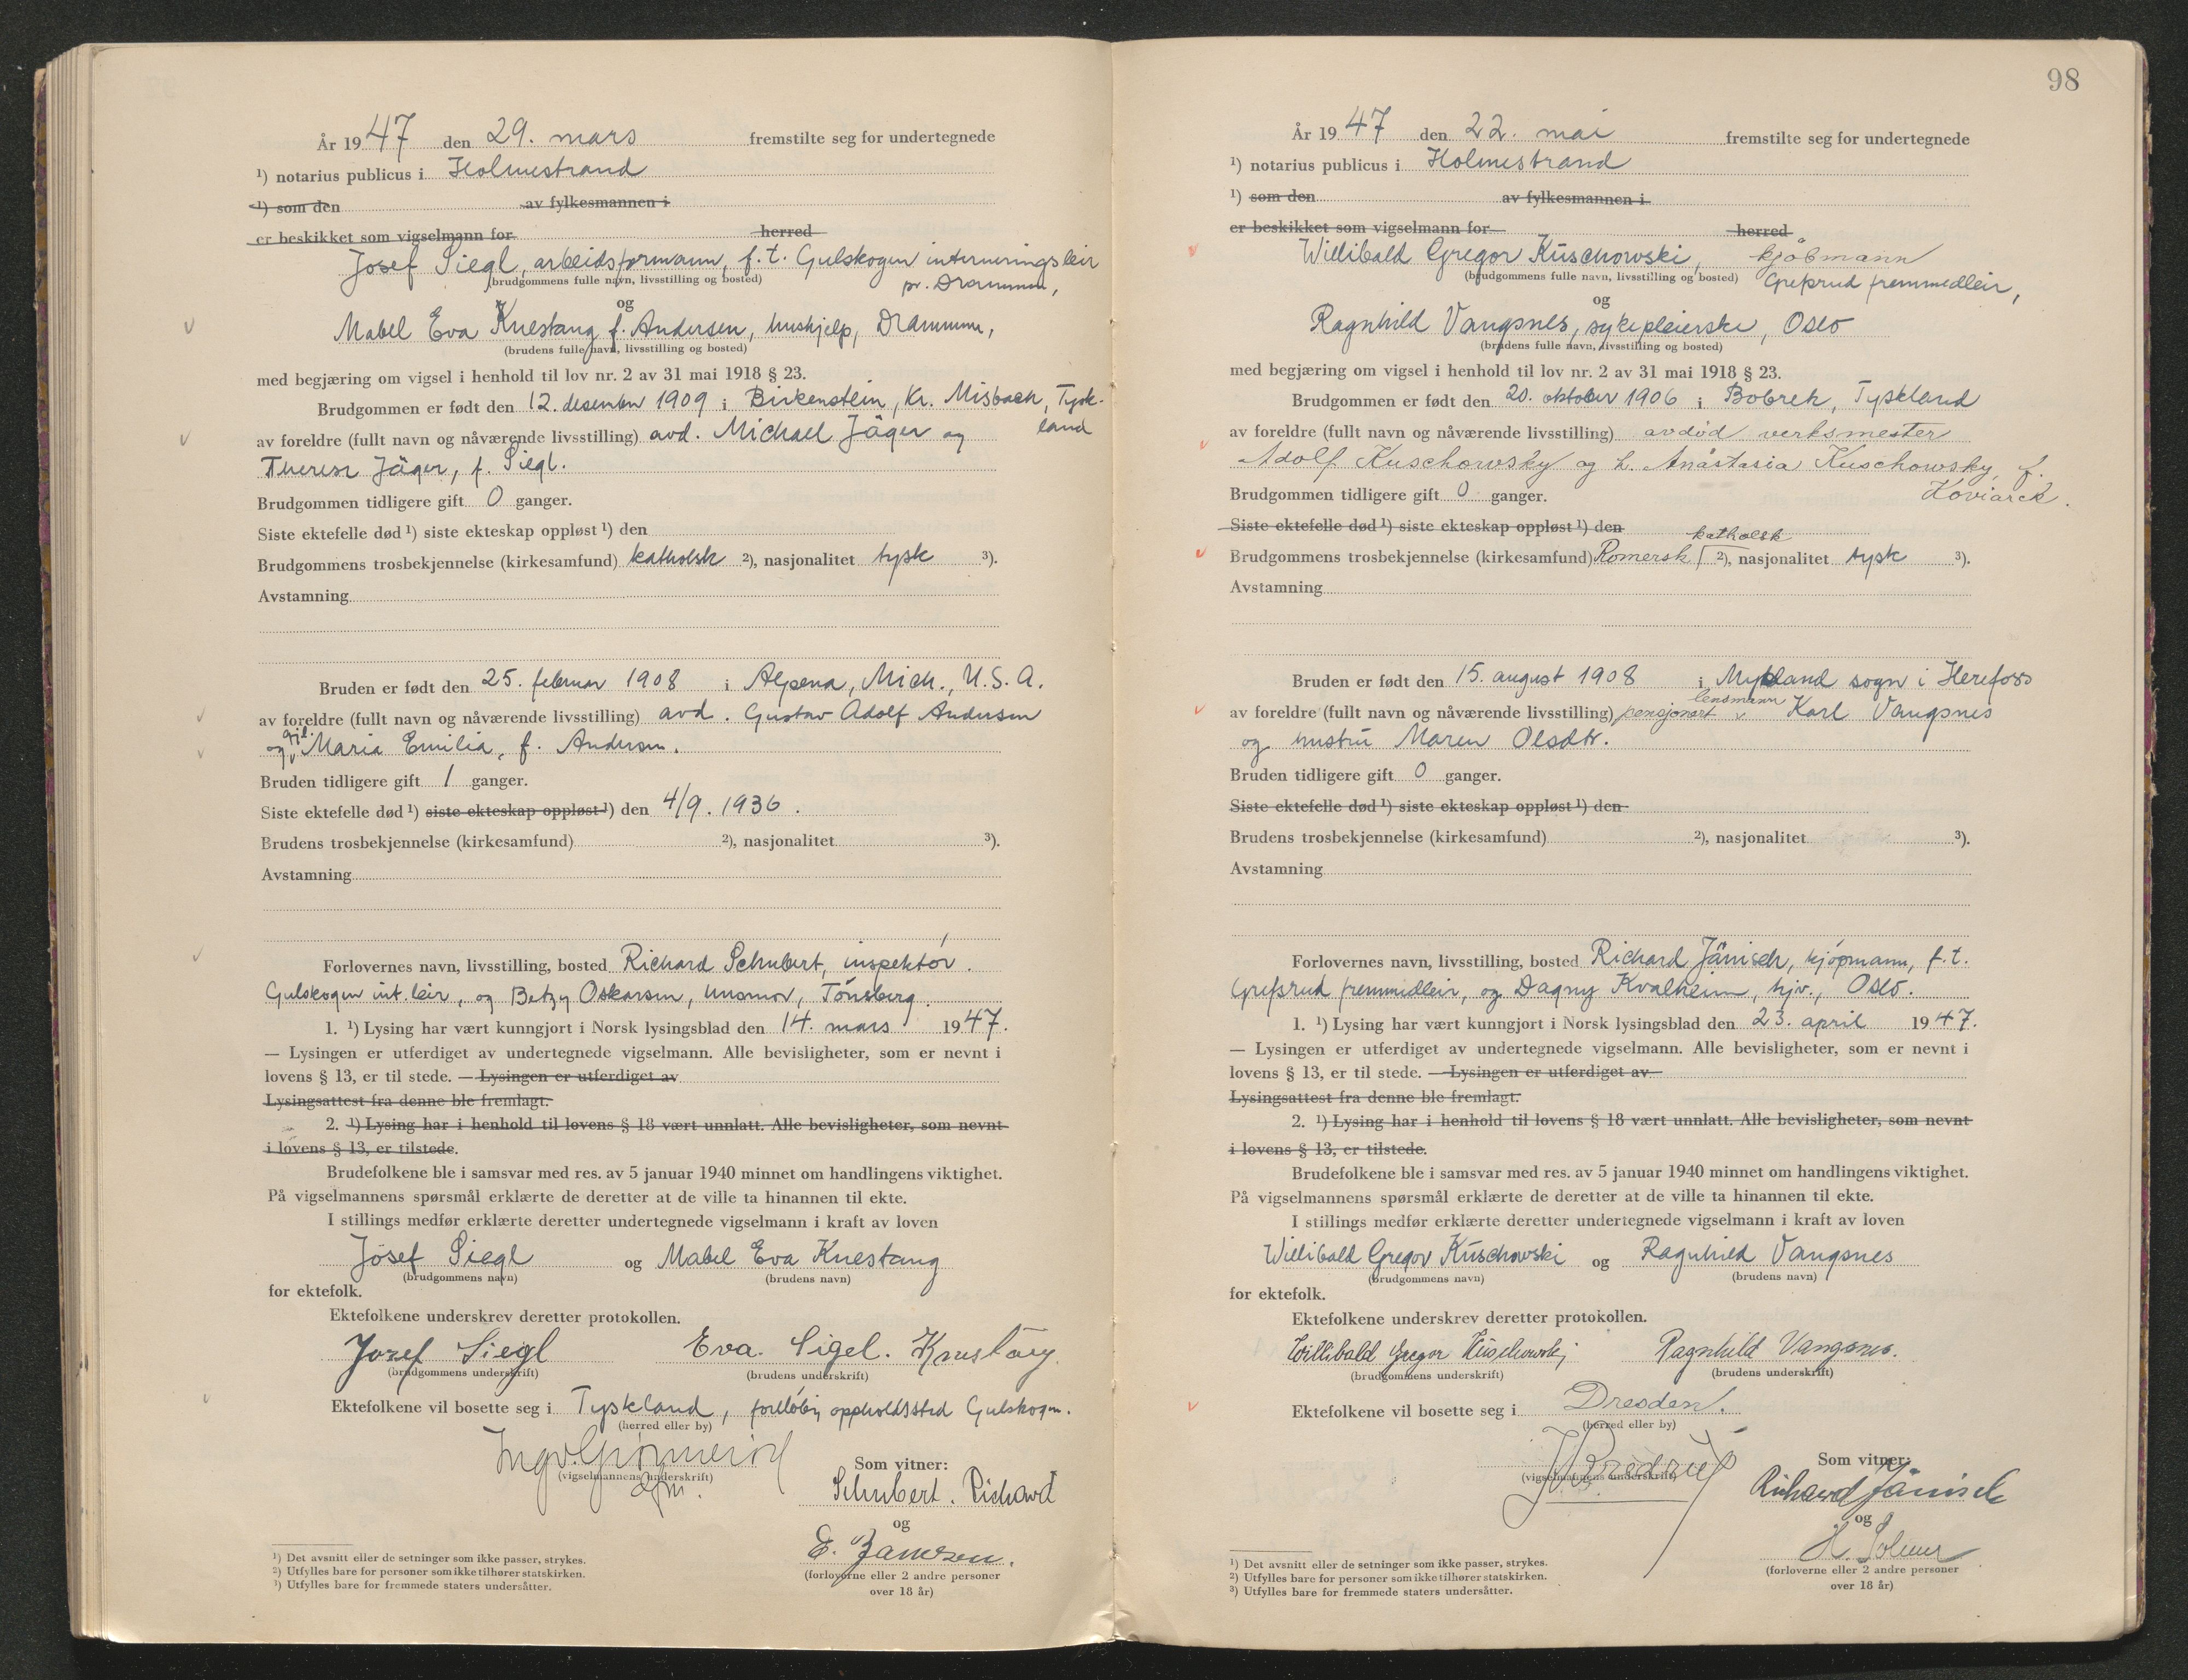 År 1947 den 29. mars fremstilte seg for undertegnede
¹) notarius publicus i Holmestrand
¹) som den av fylkesmannen i
er beskikket som vigselmann for herred
Josef Siegl, arbeidsformann, f.t. Gulskogen interneringsleir
(brudgommens fulle navn, livsstilling og bosted) pr. Drammen,
og
Mabel Eva Knestang f. Andersen, hushjelp, Drammen,
(brudens fulle navn, livsstilling og bosted)
med begjæring om vigsel i henhold til lov nr. 2 av 31 mai 1918 § 23.
Brudgommen er født den 12. desember 1909 i Birkenstein, Kr. Misbach, Tysk-
land
av foreldre (fullt navn og nåværende livsstilling) avd. Michael Jäger og
Therese Jäger, f. Siegl.
Brudgommen tidligere gift 0 ganger.
Siste ektefelle død ¹) siste ekteskap oppløst ¹) den
Brudgommens trosbekjennelse (kirkesamfund) katholsk ²), nasjonalitet tysk ³).
Avstamning
Bruden er født den 25. februar 1908 i Alpena, Mich., U.S.A.
av foreldre (fullt navn og nåværende livsstilling) avd. Gustav Adolf Andersen
og gjl. Maria Emilia, f. Andersen.
Bruden tidligere gift 1 ganger.
Siste ektefelle død ¹) siste ekteskap oppløst ¹) den 4/9. 1936.
Brudens trosbekjennelse (kirkesamfund) ²), nasjonalitet ³).
Avstamning
Forlovernes navn, livsstilling, bosted Richard Schubert, inspektör.
Gulskogen int.leir, og Betzy Oskarsen, husmor, Tönsberg.
1. ¹) Lysing har vært kunngjort i Norsk lysingsblad den 14. mars 1947.
— Lysingen er utferdiget av undertegnede vigselmann. Alle bevisligheter, som er nevnt i
lovens § 13, er til stede. — Lysingen er utferdiget av
Lysingsattest fra denne ble fremlagt.
2. ¹) Lysing har i henhold til lovens § 18 vært unnlatt. Alle bevisligheter, som nevnt
i lovens § 13, er tilstede.
Brudefolkene ble i samsvar med res. av 5 januar 1940 minnet om handlingens viktighet.
På vigselmannens spørsmål erklærte de deretter at de ville ta hinannen til ekte.
I stillings medfør erklærte deretter undertegnede vigselmann i kraft av loven
Josef Siegl og Mabel Eva Knestang
(brudgommens navn) (brudens navn)
for ektefolk.
Ektefolkene underskrev deretter protokollen.
Josef Siegl Eva. Sigel. Knestang
(brudgommens underskrift) (brudens underskrift)
Ektefolkene vil bosette seg i Tyskland, forelöbig oppholdssted Gulskogen.
(herred eller by)
Ingv. Grönneröd
(vigselmannens underskrift)
Som vitner:
Schubert. Richard
og
E. Jansen.
(forloverne eller 2 andre personer
over 18 år)
¹) Det avsnitt eller de setninger som ikke passer, strykes.
²) Utfylles bare for personer som ikke tilhører statskirken.
³) Utfylles bare for fremmede staters undersåtter.
98
År 1947 den 22. mai fremstilte seg for undertegnede
¹) notarius publicus i Holmestrand
¹) som den av fylkesmannen i
er beskikket som vigselmann for herred
Willibald Gregor Kuschowski, kjöbmann
(brudgommens fulle navn, livsstilling og bosted) Grefsrud fremmedleir,
og
Ragnhild Vangsnes, sykepleierske, Oslo
(brudens fulle navn, livsstilling og bosted)
med begjæring om vigsel i henhold til lov nr. 2 av 31 mai 1918 § 23.
Brudgommen er født den 20. oktober 1906 i Bobrek, Tyskland
av foreldre (fullt navn og nåværende livsstilling) avdød verksmester
Adolf Kuschowsky og h. Anastasia Kuschowsky, f.
Koviarek.
Brudgommen tidligere gift 0 ganger.
Siste ektefelle død ¹) siste ekteskap oppløst ¹) den
katholsk
Brudgommens trosbekjennelse (kirkesamfund) Romersk ²), nasjonalitet tysk ³).
Avstamning
Bruden er født den 15. august 1908 i Mykland sogn i Herefoss
lensmann
av foreldre (fullt navn og nåværende livsstilling) pensjonert Karl Vangsnes
og hustru Maren Olsdtr.
Bruden tidligere gift 0 ganger.
Siste ektefelle død ¹) siste ekteskap oppløst ¹) den
Brudens trosbekjennelse (kirkesamfund) ²), nasjonalitet ³).
Avstamning
Forlovernes navn, livsstilling, bosted Richard Jänisch, kjöpmann, f.t.
Grefsrud fremmedleir, og Dagny Kvalheim, hjv., Oslo.
1. ¹) Lysing har vært kunngjort i Norsk lysingsblad den 23. april 1947.
— Lysingen er utferdiget av undertegnede vigselmann. Alle bevisligheter, som er nevnt i
lovens § 13, er til stede. — Lysingen er utferdiget av
Lysingsattest fra denne ble fremlagt.
2. ¹) Lysing har i henhold til lovens § 18 vært unnlatt. Alle bevisligheter, som nevnt
i lovens § 13, er tilstede.
Brudefolkene ble i samsvar med res. av 5 januar 1940 minnet om handlingens viktighet.
På vigselmannens spørsmål erklærte de deretter at de ville ta hinannen til ekte.
I stillings medfør erklærte deretter undertegnede vigselmann i kraft av loven
Willibald Gregor Kuschowski og Ragnhild Vangsnes
(brudgommens navn) (brudens navn)
for ektefolk.
Ektefolkene underskrev deretter protokollen.
Willibald Gregor Kuschowski Ragnhild Vangsnes.
(brudgommens underskrift) (brudens underskrift)
Ektefolkene vil bosette seg i Dresden.
(herred eller by)
(vigselmannens underskrift)
Som vitner:
Richard Jänisch
og
(forloverne eller 2 andre personer
over 18 år)
¹) Det avsnitt eller de setninger som ikke passer, strykes.
²) Utfylles bare for personer som ikke tilhører statskirken.
³) Utfylles bare for fremmede staters undersåtter.